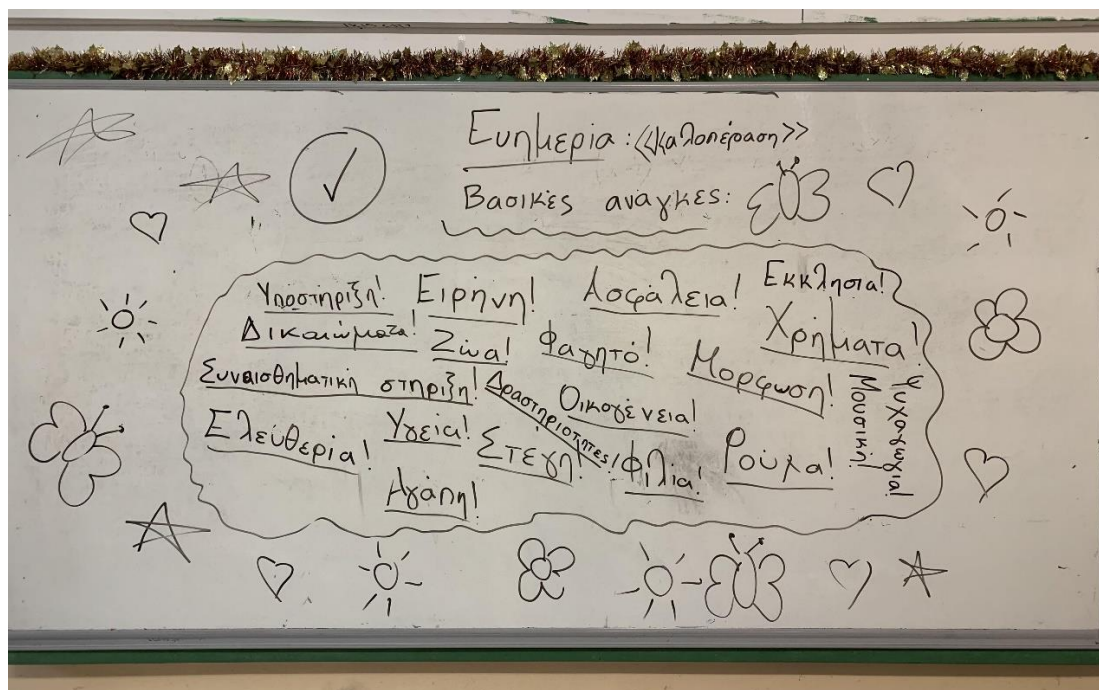 Ευημερία: <<καλοπέραση>>
Βασικές ανάγκες:
Υποστήριξη! Ειρήνη! Ασφάλεια! Εκκλησία!
Δικαιώματα! Ζώα! Φαγητό! Μόρφωση! Χρήματα!
Συναισθηματική στήριξη! Δραστηριότητες! Οικογένεια! Μουσική! Ψυχαγωγία!
Ελευθερία! Υγεία! Στέγη! Φιλία! Ρούχα!
Αγάπη!